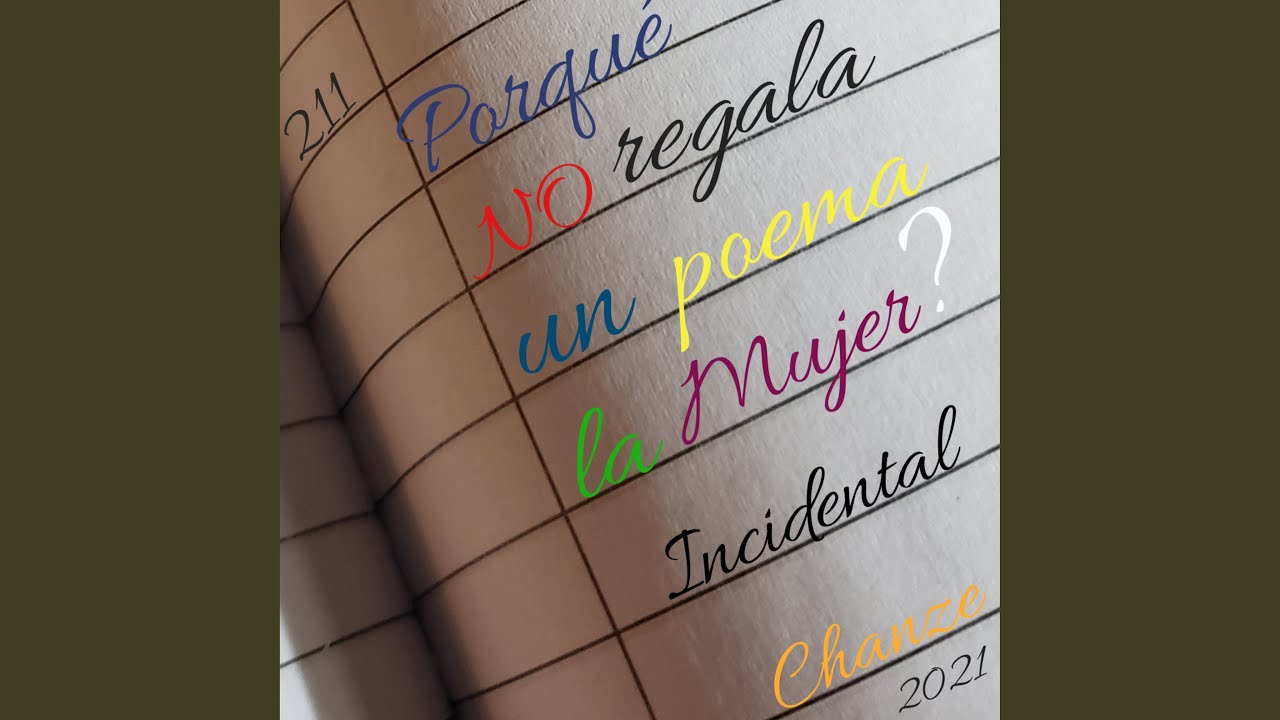 211
Porqué
NO regala
un poema
la Mujer?
Incidental
Chanze
2021